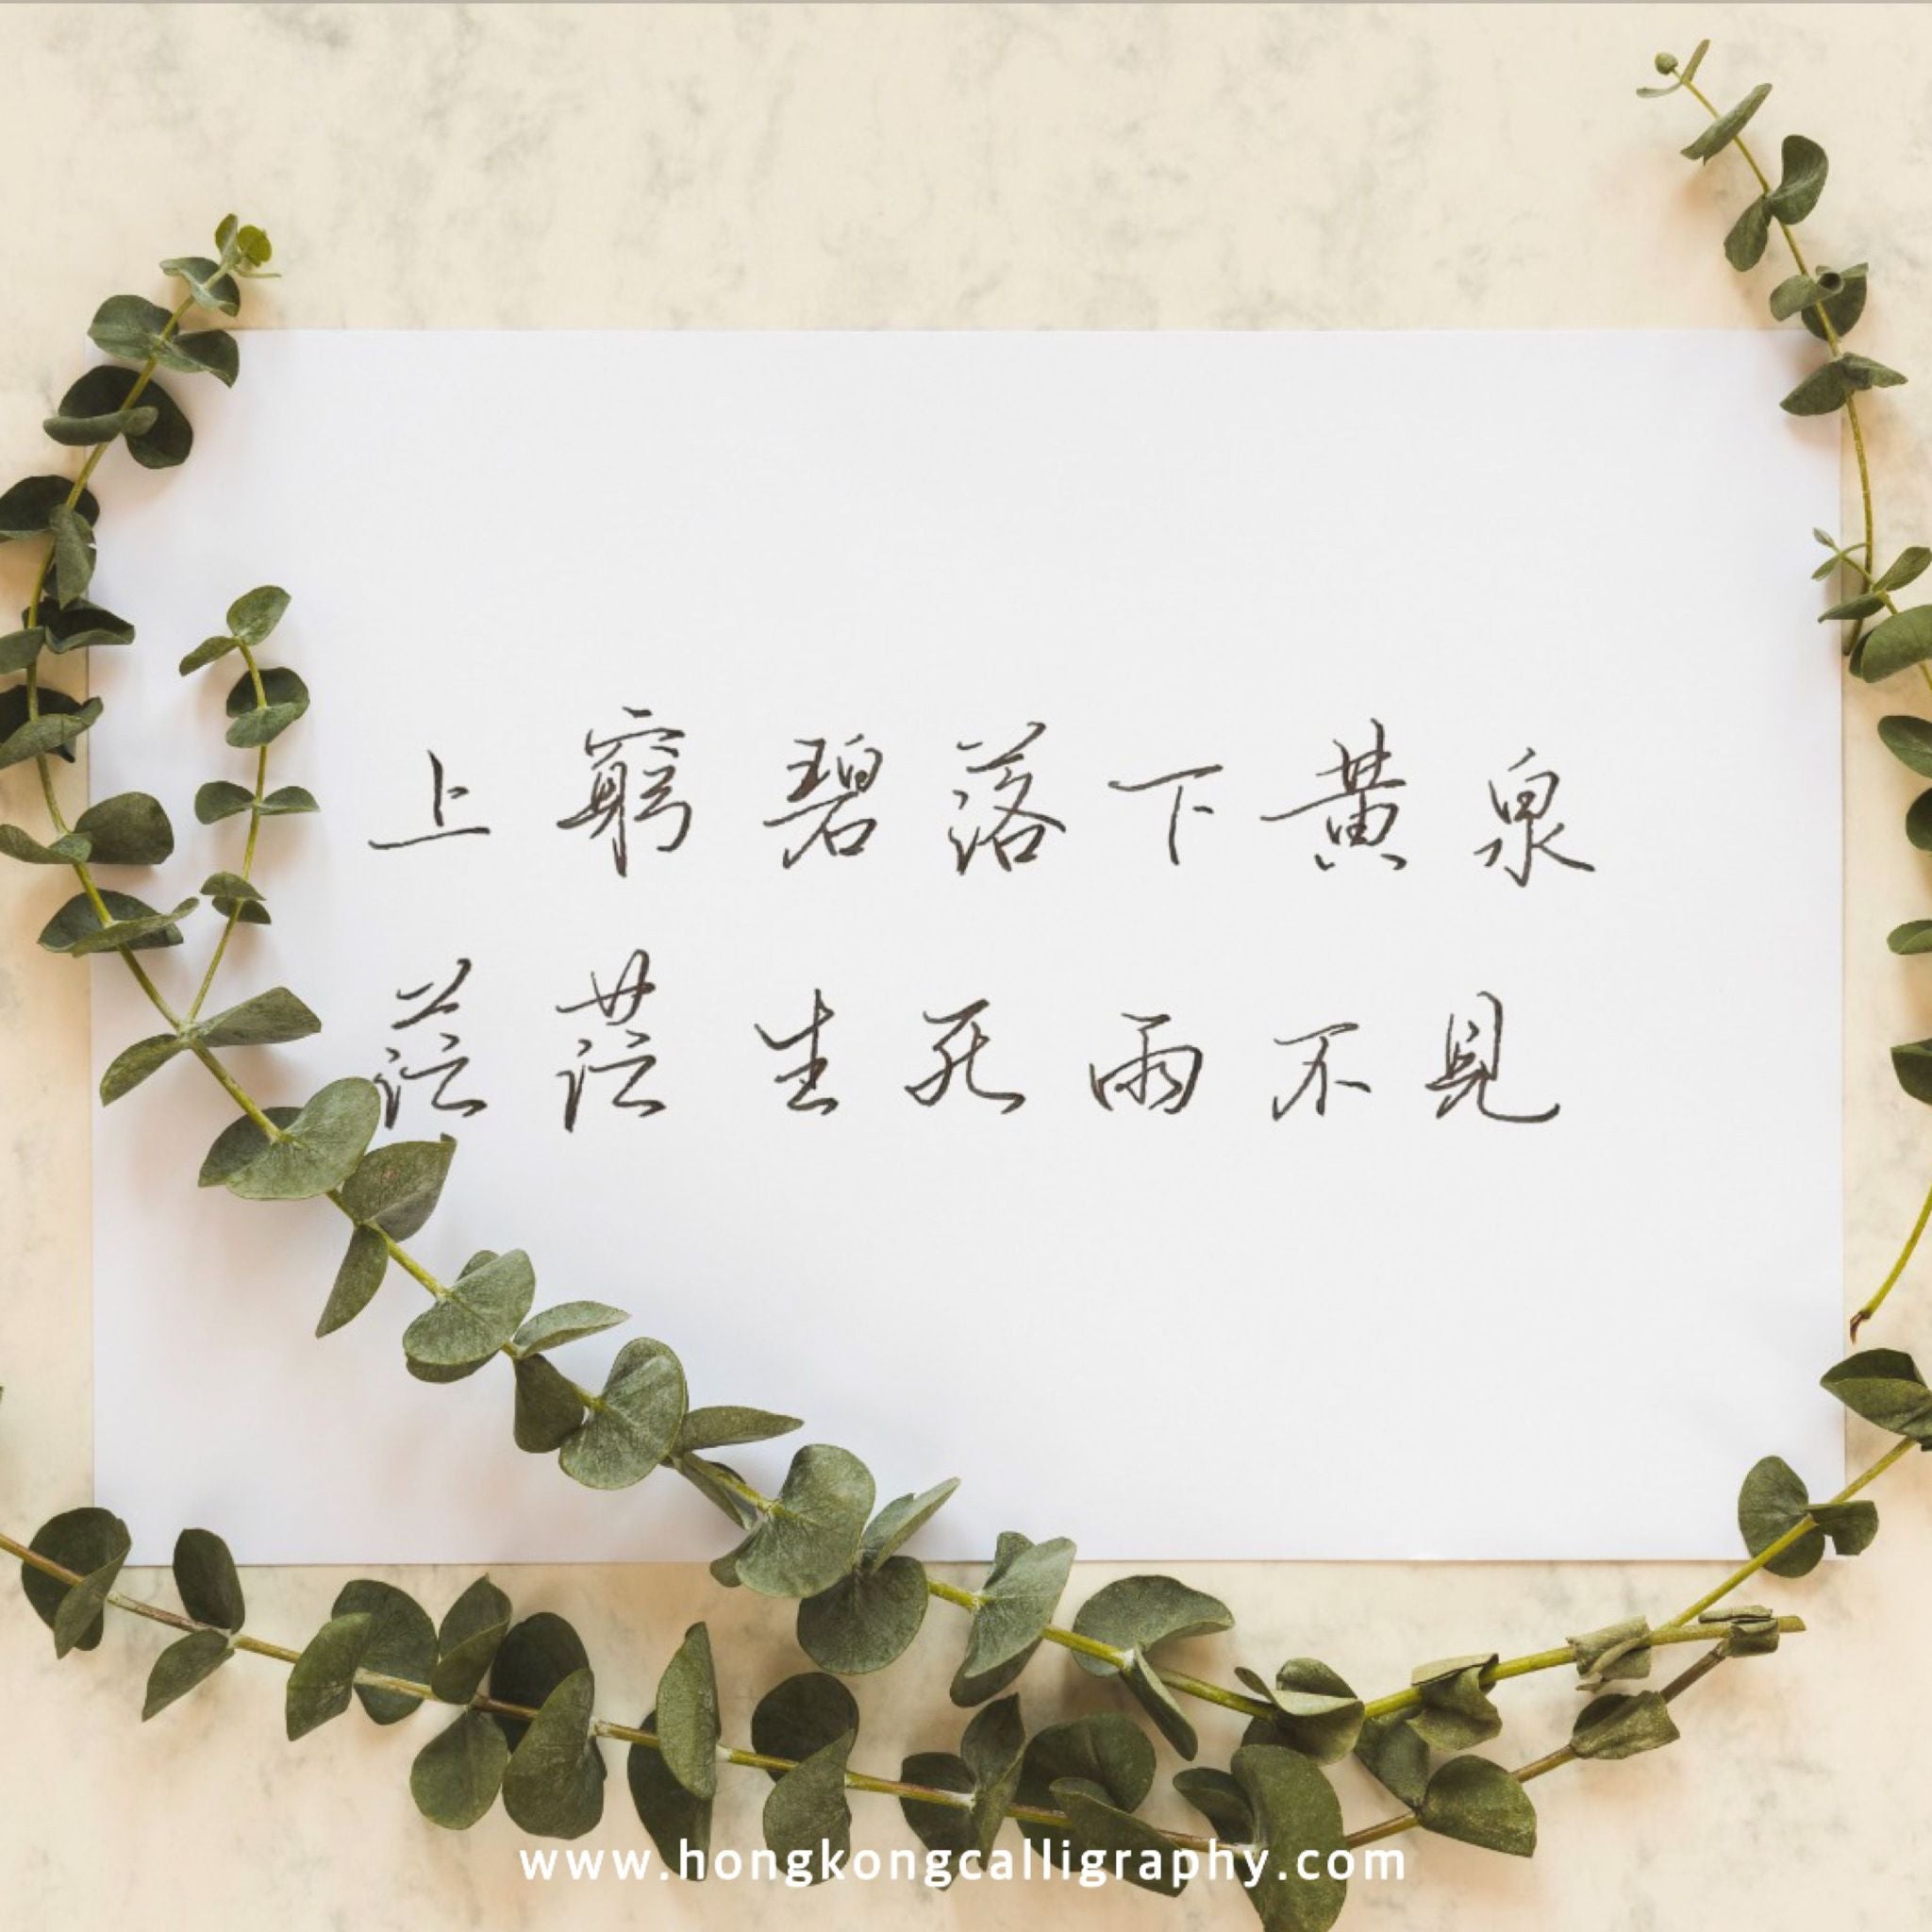 上窮碧落下黃泉
茫茫生死兩不見
www.hongkongcalligraphy.com